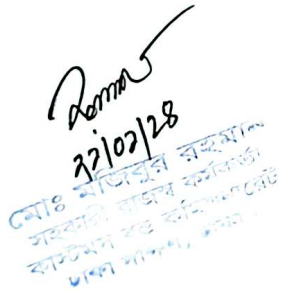 ২১/০১/২৪
মোঃ মজিবুর রহমান
সহকারী রাজস্ব কর্মকর্তা
কাস্টমস বন্ড কমিশনারেট
ঢাকা